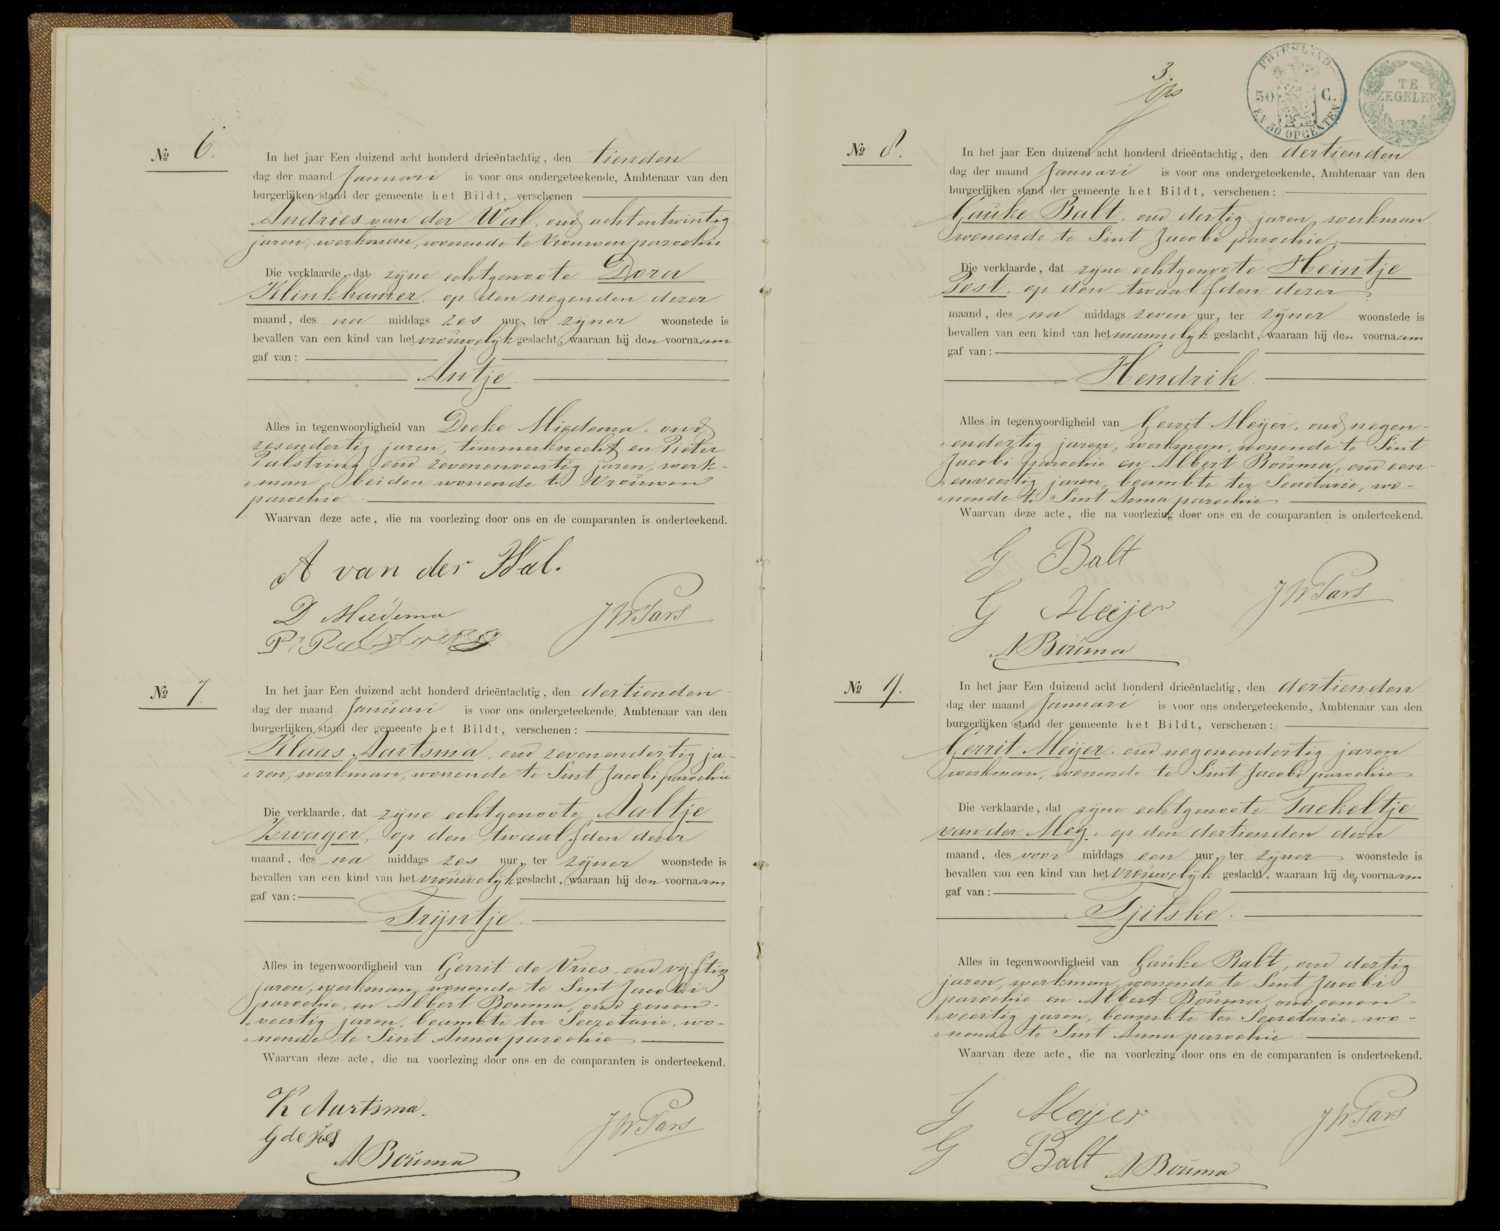 № 6.
In het jaar Een duizend acht honderd drieëntachtig, den tienden
dag der maand Januari is voor ons ondergeteekende, Ambtenaar van den
burgerlijken stand der gemeente het Bildt, verschenen
Andries van der Wal, oud achtentwintig
jaren, werkman, wonende te Vrouwen parochie
Die verklaarde, dat zijne echtgenoote Dora
Klinkhamer, op den negenden dezer
maand, des na middags zes uur, ter zijner woonstede is
bevallen van een kind van het vrouwelijk geslacht, waaraan hij den voornaam
gaf van:
Antje.
Alles in tegenwoordigheid van Doeke Miedema, oud
zesendertig jaren, timmerknecht en Pieter
Palstring, oud zevenenveertig jaren, werk-
man, beiden wonende te Vrouwen
parochie
Waarvan deze acte, die na voorlezing door ons en de comparanten is onderteekend.
A van der Wal.
D Miedema
J W Pars
№ 7.
In het jaar Een duizend acht honderd drieëntachtig, den dertienden
dag der maand Januari is voor ons ondergeteekende, Ambtenaar van den
burgerlijken stand der gemeente het Bildt, verschenen:
Klaas Aartsma, oud zevenendertig ja-
ren, werkman, wonende te Sint Jacobi parochie
Die verklaarde, dat zijne echtgenoote Aaltje
Zwager, op den twaalfden dezer
maand, des na middags zes uur, ter zijner woonstede is
bevallen van een kind van het vrouwelijk geslacht, waaraan hij den voornaam
gaf van:
Trijntje.
Alles in tegenwoordigheid van Gerrit de Vries, oud vijftig
jaren, werkman, wonende te Sint Jacobi
parochie, en Albert Bouma, oud eenen-
veertig jaren, beambte ter Secretarie, wo-
nende te Sint Anna parochie
Waarvan deze acte, die na voorlezing door ons en de comparanten is onderteekend.
K Aartsma.
J W Pars
A Bouma
3.
FRIESLAND
50 C.
EN 30 OPCENTEN
TE
ZEGELEN
№ 8.
In het jaar Een duizend acht honderd drieëntachtig, den dertienden
dag der maand Januari is voor ons ondergeteekende, Ambtenaar van den
burgerlijken stand der gemeente het Bildt, verschenen:
Gauke Balt, oud dertig jaren, werkman
wonende te Sint Jacobi parochie
Die verklaarde, dat zijne echtgenoote Heintje
Post, op den twaalfden dezer
maand, des na middags zeven uur, ter zijner woonstede is
bevallen van een kind van het mannelijk geslacht, waaraan hij den voornaam
gaf van:
Hendrik.
Alles in tegenwoordigheid van Gerrit Meijer, oud negen-
endertig jaren, werkman, wonende te Sint
Jacobi parochie en Albert Bouma, oud een-
enveertig jaren, beambte ter Secretarie, wo-
nende te Sint Anna parochie
Waarvan deze acte, die na voorlezing door ons en de comparanten is onderteekend.
G Balt
G Meijer
J W Pars
A Bouma
№ 9.
In het jaar Een duizend acht honderd drieëntachtig, den dertienden
dag der maand Januari is voor ons ondergeteekende, Ambtenaar van den
burgerlijken stand der gemeente het Bildt, verschenen:
Gerrit Meijer, oud negenendertig jaren
werkman, wonende te Sint Jacobi parochie
Die verklaarde, dat zijne echtgenoote Taekeltje
van der Meg, op den dertienden dezer
maand, des voor middags een uur, ter zijner woonstede is
bevallen van een kind van het vrouwelijk geslacht, waaraan hij den voornaam
gaf van:
Tjitske.
Alles in tegenwoordigheid van Gauke Balt, oud dertig
jaren, werkman, wonende te Sint Jacobi
parochie en Albert Bouma, oud eenen-
veertig jaren, beambte ter Secretarie, wo-
nende te Sint Anna parochie
Waarvan deze acte, die na voorlezing door ons en de comparanten is onderteekend.
G Meijer
J W Pars
G Balt
A Bouma